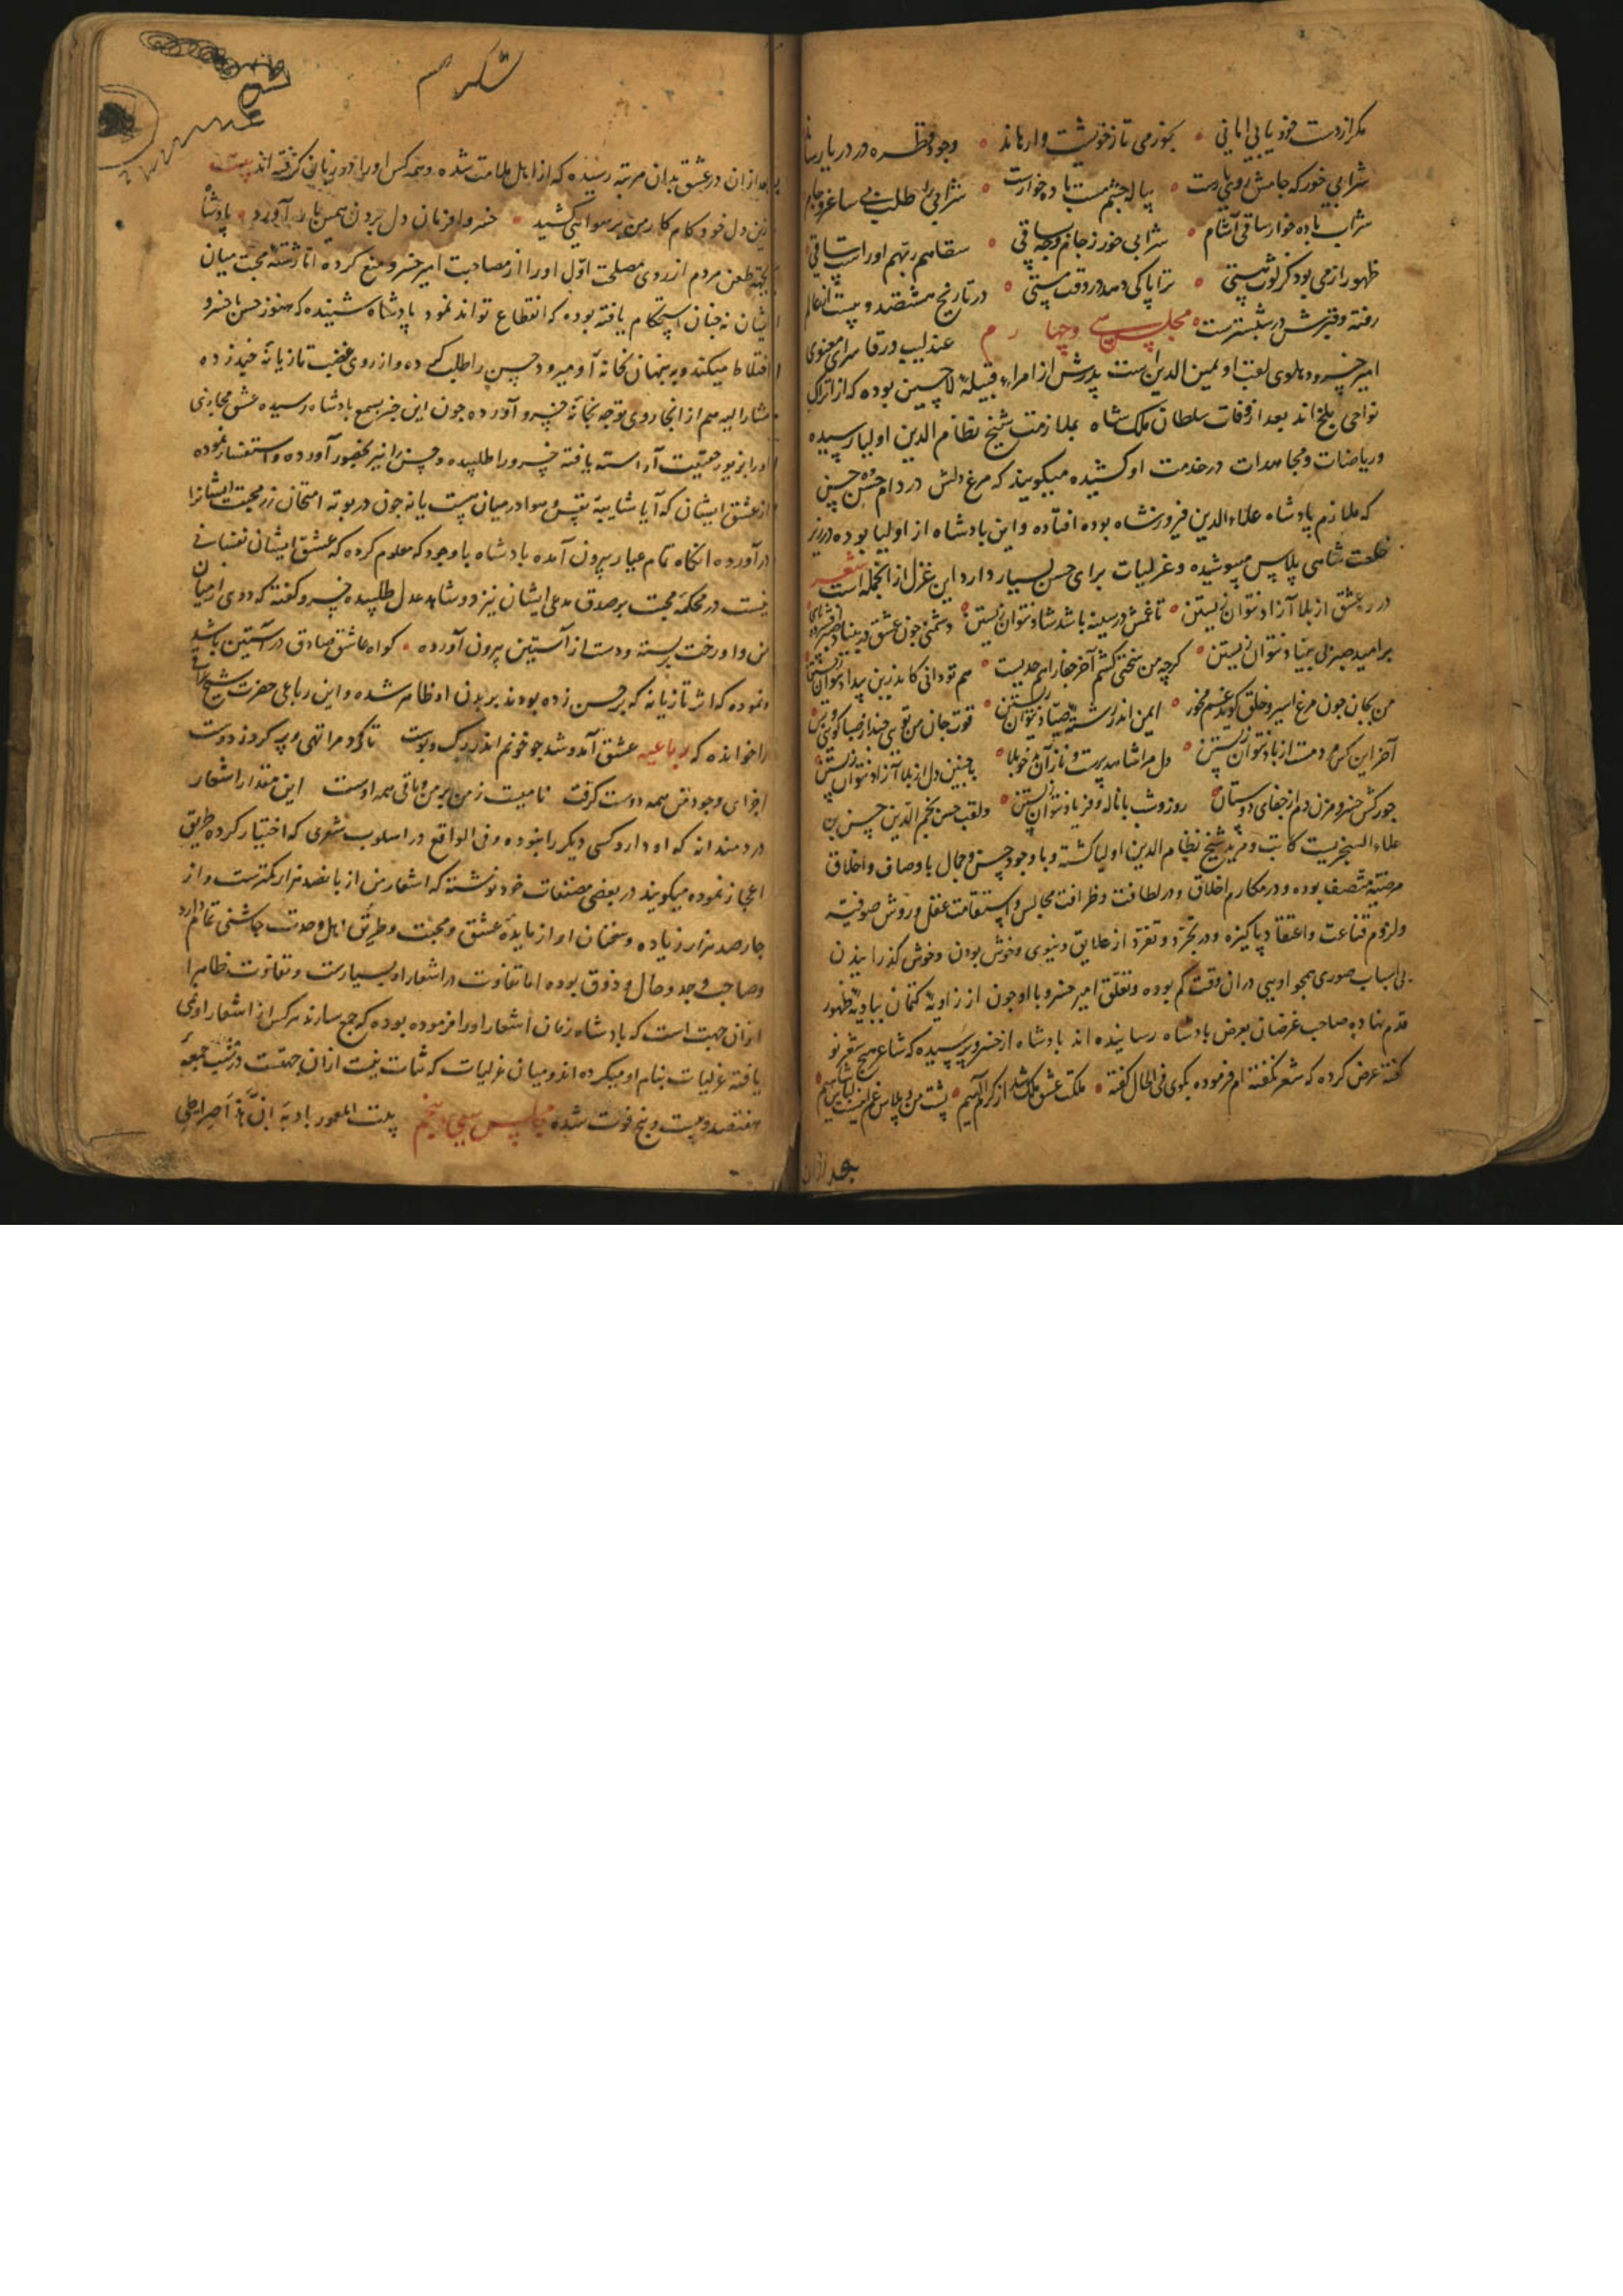 مکر از دست خود یابی امانی • بخور می تا ز خویشت وارهاند • وجود قطره در دریا رساند
شرابی خور که جامش روی یارست • پیاله چشم مست باده خوارست • شرابی را طلب بی ساغر و جام
شراب باده خوار ساقی آشام • شرابی خور ز جام وجه باقی • سقاهم ربهم او راست ساقی
طهور ازمی بود کز لوث هستی • ترا پاکی دهد در وقت مستی • در تاریخ هشتصد و بیست از عالم
رفته و قبرش در شبسترست • مجلس سی و چهارم عندلیب ورقا سرای معنوی
امیر خسرو دهلوی لقب او یمین الدین است پدرش از امراء قبیله لاچین بوده که از اتراک
نواحی بلخ اند بعد از وفات سلطان ملک شاه بملازمت شیخ نظام الدین اولیا رسیده
و ریاضات و مجاهدات در خدمت او کشیده میکویند که مرغ دلش در دام حسن حسن
که ملازم پادشاه علاء الدین فیروزشاه بوده افتاده و این پادشاه از اولیا بوده در زیر
خلعت شاهی پلاس میپوشیده و غزلیات برای حسن بسیار دارد این غزل از انجمله است شعر
در ره عشق از بلا آزاد نتوان زیستن • تا غمش در سینه باشد شاد نتوان زیستن • دشمنی چون عشق در بنیاد
بر امید صبر بی بنیاد نتوان زیستن • کرچه من سختی کشم آخر جفا را هم حدیست • هم تو دانی کاندرین بیداد نتوان زیستن
من بجان چون مرغ اسیر و خلق کویند غم مخور • ایمن اندر رشته صیاد نتوان زیستن • قوت جان من تویی چند از صبا کوی و بس
آخر این کس دمت از باد نتوان زیستن • دل مرا شاهد پرست و ناز آن خوبلا • با چنین دل از بلا آزاد نتوان زیستن
جور کش خسرو مزن دم از جفای دوستان • روز و شب با ناله و فریاد نتوان زیستن • و لقب حسن نجم الدین حسن بن
علاء السنجریست کاتب و مرید شیخ نظام الدین اولیا کشته و با وجود حسن و جمال باوصاف و اخلاق
مرضیه متصف بوده و در مکارم اخلاق و در لطافت و ظرافت مجالس و استقامت عقل و روش صوفیه
و لزوم قناعت و اعتقاد پاکیزه و در تجرد و تفرد از علایق دنیوی و خوش بودن و خوش کذرانیدن
بی اسباب صوری همچو اویی در ان وقت کم بوده و تعلق امیر خسرو با او چون از زاویه کتمان ببادیه ظهور
قدم نهاده صاحب غرضان بعرض پادشاه رسانیده اند پادشاه از خسرو پرسیده که شاعر هیچ شعر نو
کفته عرض کرده که شعر نکفته ام فرموده بکوی فی الحال کفته • ملکت عشق ملک شد از کرم الهیم • پشت من و پلاس غم اینست لباس شاهیم
بعد از ان
بعد از ان در عشق بدان مرتبه رسیده که از اهل ملامت شده و همه کس او را در زبانی کرفته اند بیت
زین دل خود کام کار من برسوایی کشید • خسروا فرمان دل بردن همین بار آورد • پادشاه
بجهة طعن مردم از روی مصلحت اول او را از مصاحبت امیر خسرو منع کرده اما رشته محبت میان
ایشان نه چنان استحکام یافته بوده که انقطاع تواند نمود پادشاه شنیده که هنوز حسن با خسرو
اختلاط میکند و به پنهان بخانه او میرود حسن را طلب کرده و از روی غضب تازیانه چند زده
مشار الیه هم از انجا روی توجه بخانه خسرو آورده چون این خبر بسمع پادشاه رسیده عشق مجازی
او را بزیور حقیقت آراسته یافته خسرو را طلبیده و حسن را نیز بحضور آورده و استفسار نموده
از عشق ایشان که آیا شایبه نفس و هوا در میان هست یا نه چون در بوته امتحان زر محبت ایشانرا
در آورده انکاه تمام عیار بیرون آمده پادشاه باوجود که معلوم کرده که عشق ایشان نفسانی
نیست در محکمه محبت بر صدق مدعی ایشان نیز دو شاهد عدل طلبیده خسرو کفته که دویی از میان
من و او رخت بربسته و دست از آستین بیرون آورده • کواه عاشق صادق در آستین باشد
و نموده که اثر تازیانه که بر حسن زده بودند بر بدن او ظاهر شده و این رباعی حضرت شیخ
را خوانده که رباعیه عشق آمد و شد چو خونم اندر رک و پوست تا کرد مرا تهی و پر کرد ز دوست
اجزای وجود من همه دوست کرفت نامیست ز من بر من و باقی همه اوست این مقدار اشعار
دردمندانه که او دارد کسی دیکر را نبوده و فی الواقع در اسلوب شعری که اختیار کرده طریق
اعجاز نموده میکویند در بعضی مصنفات خود نوشته که اشعار من از پانصد هزار کمترست و از
چارصد هزار زیاده و سخنان او از مایده عشق و محبت و طریق اهل وحدت چاشنی تمام دارد
و صاحب وجد و حال و ذوق بوده اما تفاوت در اشعار او بسیارست و تفاوت ظاهرا
از ان جهت است که پادشاه زمان اشعار او را فرموده بوده که جمع سازند هر کس از اشعار او می
یافته غزلیات بنام او میکرده اند و میان غزلیات که ثبات نیست از ان جهتست در شب جمعه
هفتصد و بیست و پنج فوت شده مجلس سی و پنجم بیت المعمور بادیه ان هذا صراطی